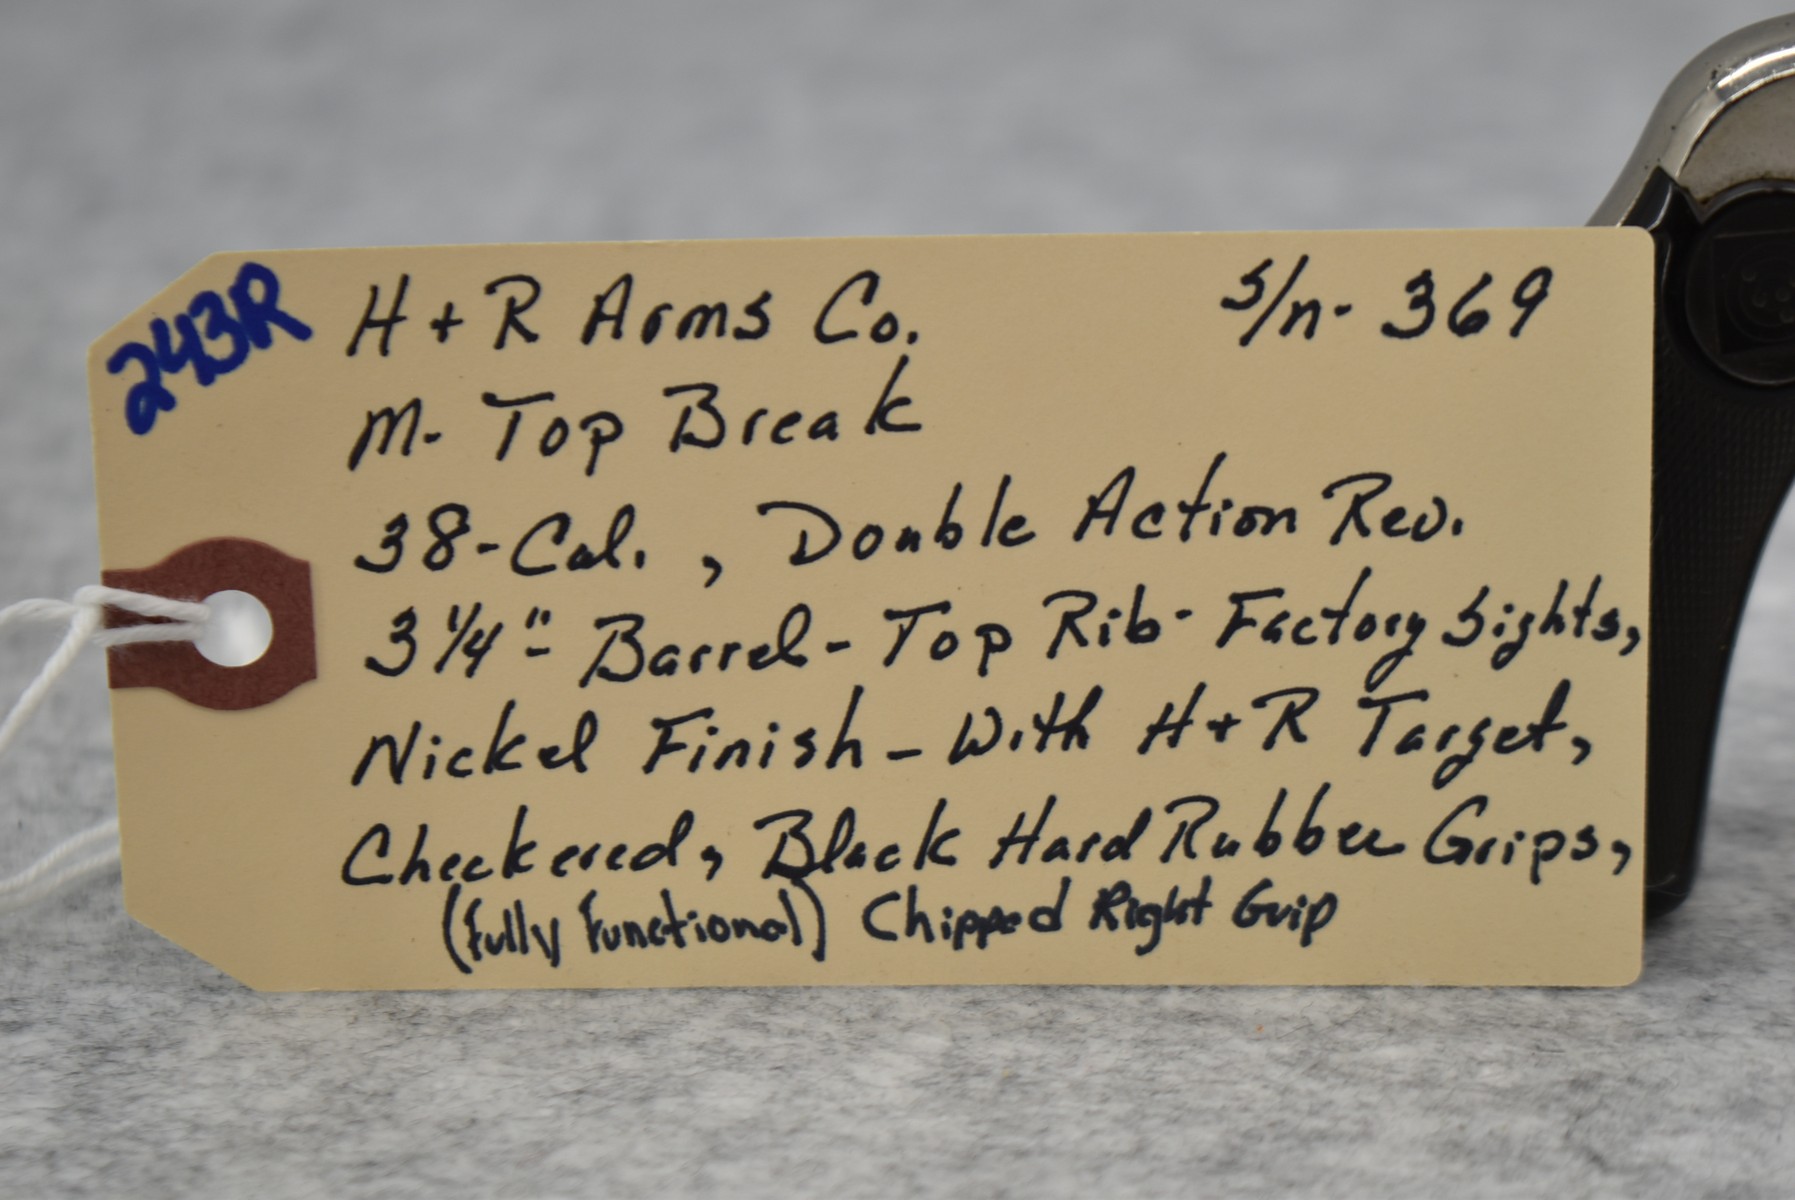 243R
H + R Arms Co. S/n- 369
M- Top Break
38-Cal. , Double Action Rev.
3 1/4" - Barrel - Top Rib - Factory Sights,
Nickel Finish - With H + R Target,
Checkered, Black Hard Rubber Grips,
(Fully Functional) Chipped Right Grip